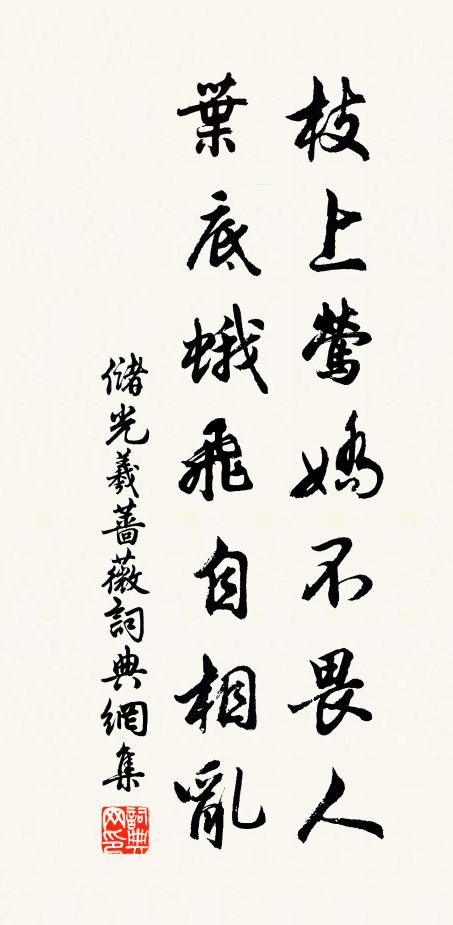 枝上鶯嬌不畏人
葉底蛾飛自相亂
儲光羲薔薇詞典網集
詞典網印